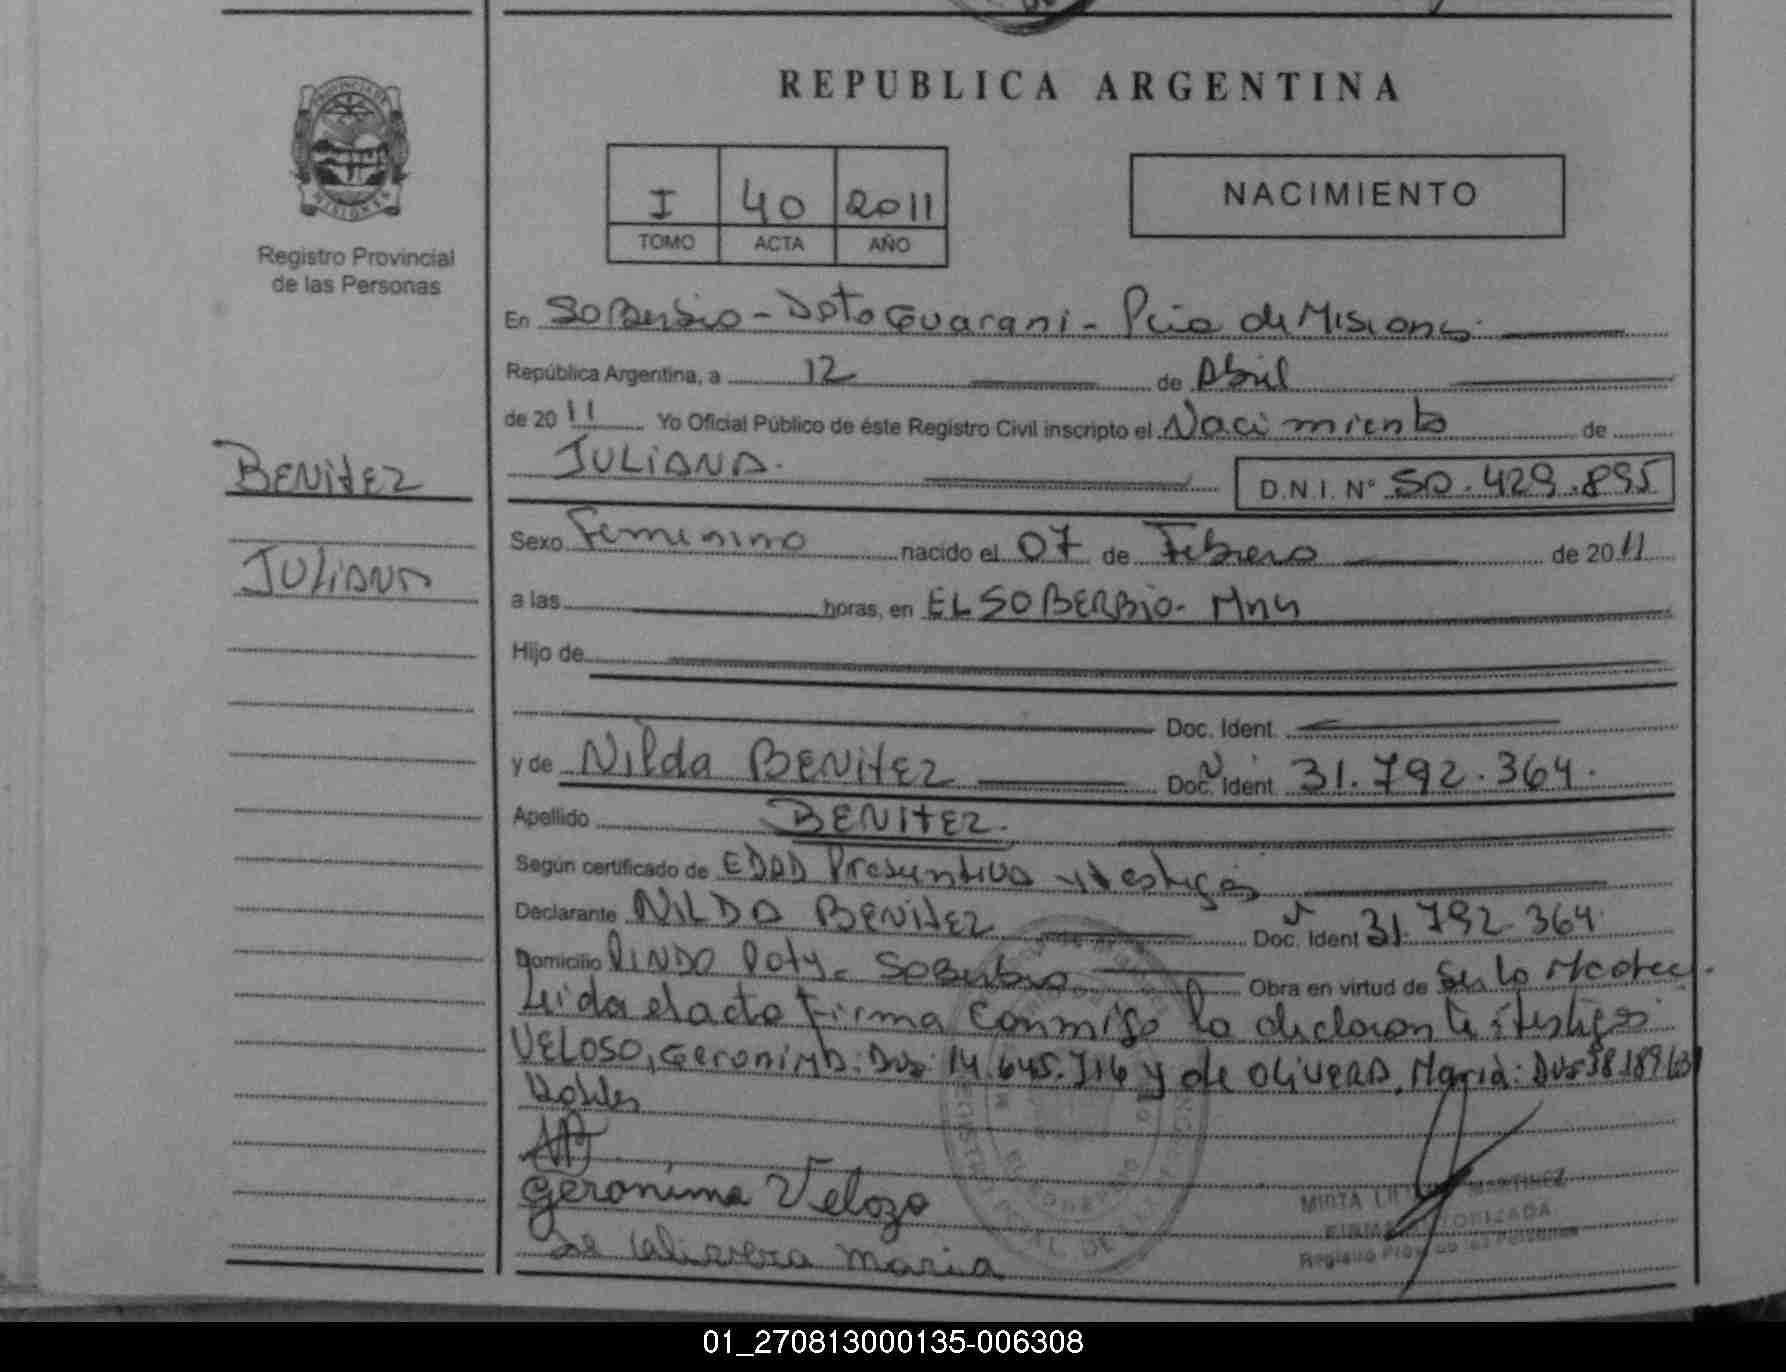 REPUBLICA ARGENTINA
PROVINCIA DE
MISIONES
Registro Provincial
de las Personas
I 40 2011
TOMO ACTA AÑO
NACIMIENTO
En Soberbio - Dpto Guarani - Pcia de Misiones.
República Argentina, a 12 de Abril
de 2011 Yo Oficial Público de éste Registro Civil inscripto el Nacimiento de
JULIANA. D.N.I. N° 50.429.895
BENITEZ
JULIANA
Sexo Femenino nacido el 07 de Febrero de 2011
a las horas, en EL SOBERBIO - Mns
Hijo de
Doc. Ident.
y de Nilda BENITEZ Doc. Ident. 31.792.364.
Apellido BENITEZ.
Según certificado de EDAD Presuntiva y testigos
Declarante NILDA BENITEZ Doc. Ident 31.792.364.
Domicilio PINDO Poty - Soberbio Obra en virtud de Ser la Madre.
Leida el acta Firma conmigo la declarante i testigos
VELOSO, Geronima: DNI: 14.645.716 y de OLIVERA, Maria:
Geronima Velozo
De Maria
MIRTA MARTINEZ
FIRMA AUTORIZADA
Registro Prov. de las Personas
01_270813000135-006308